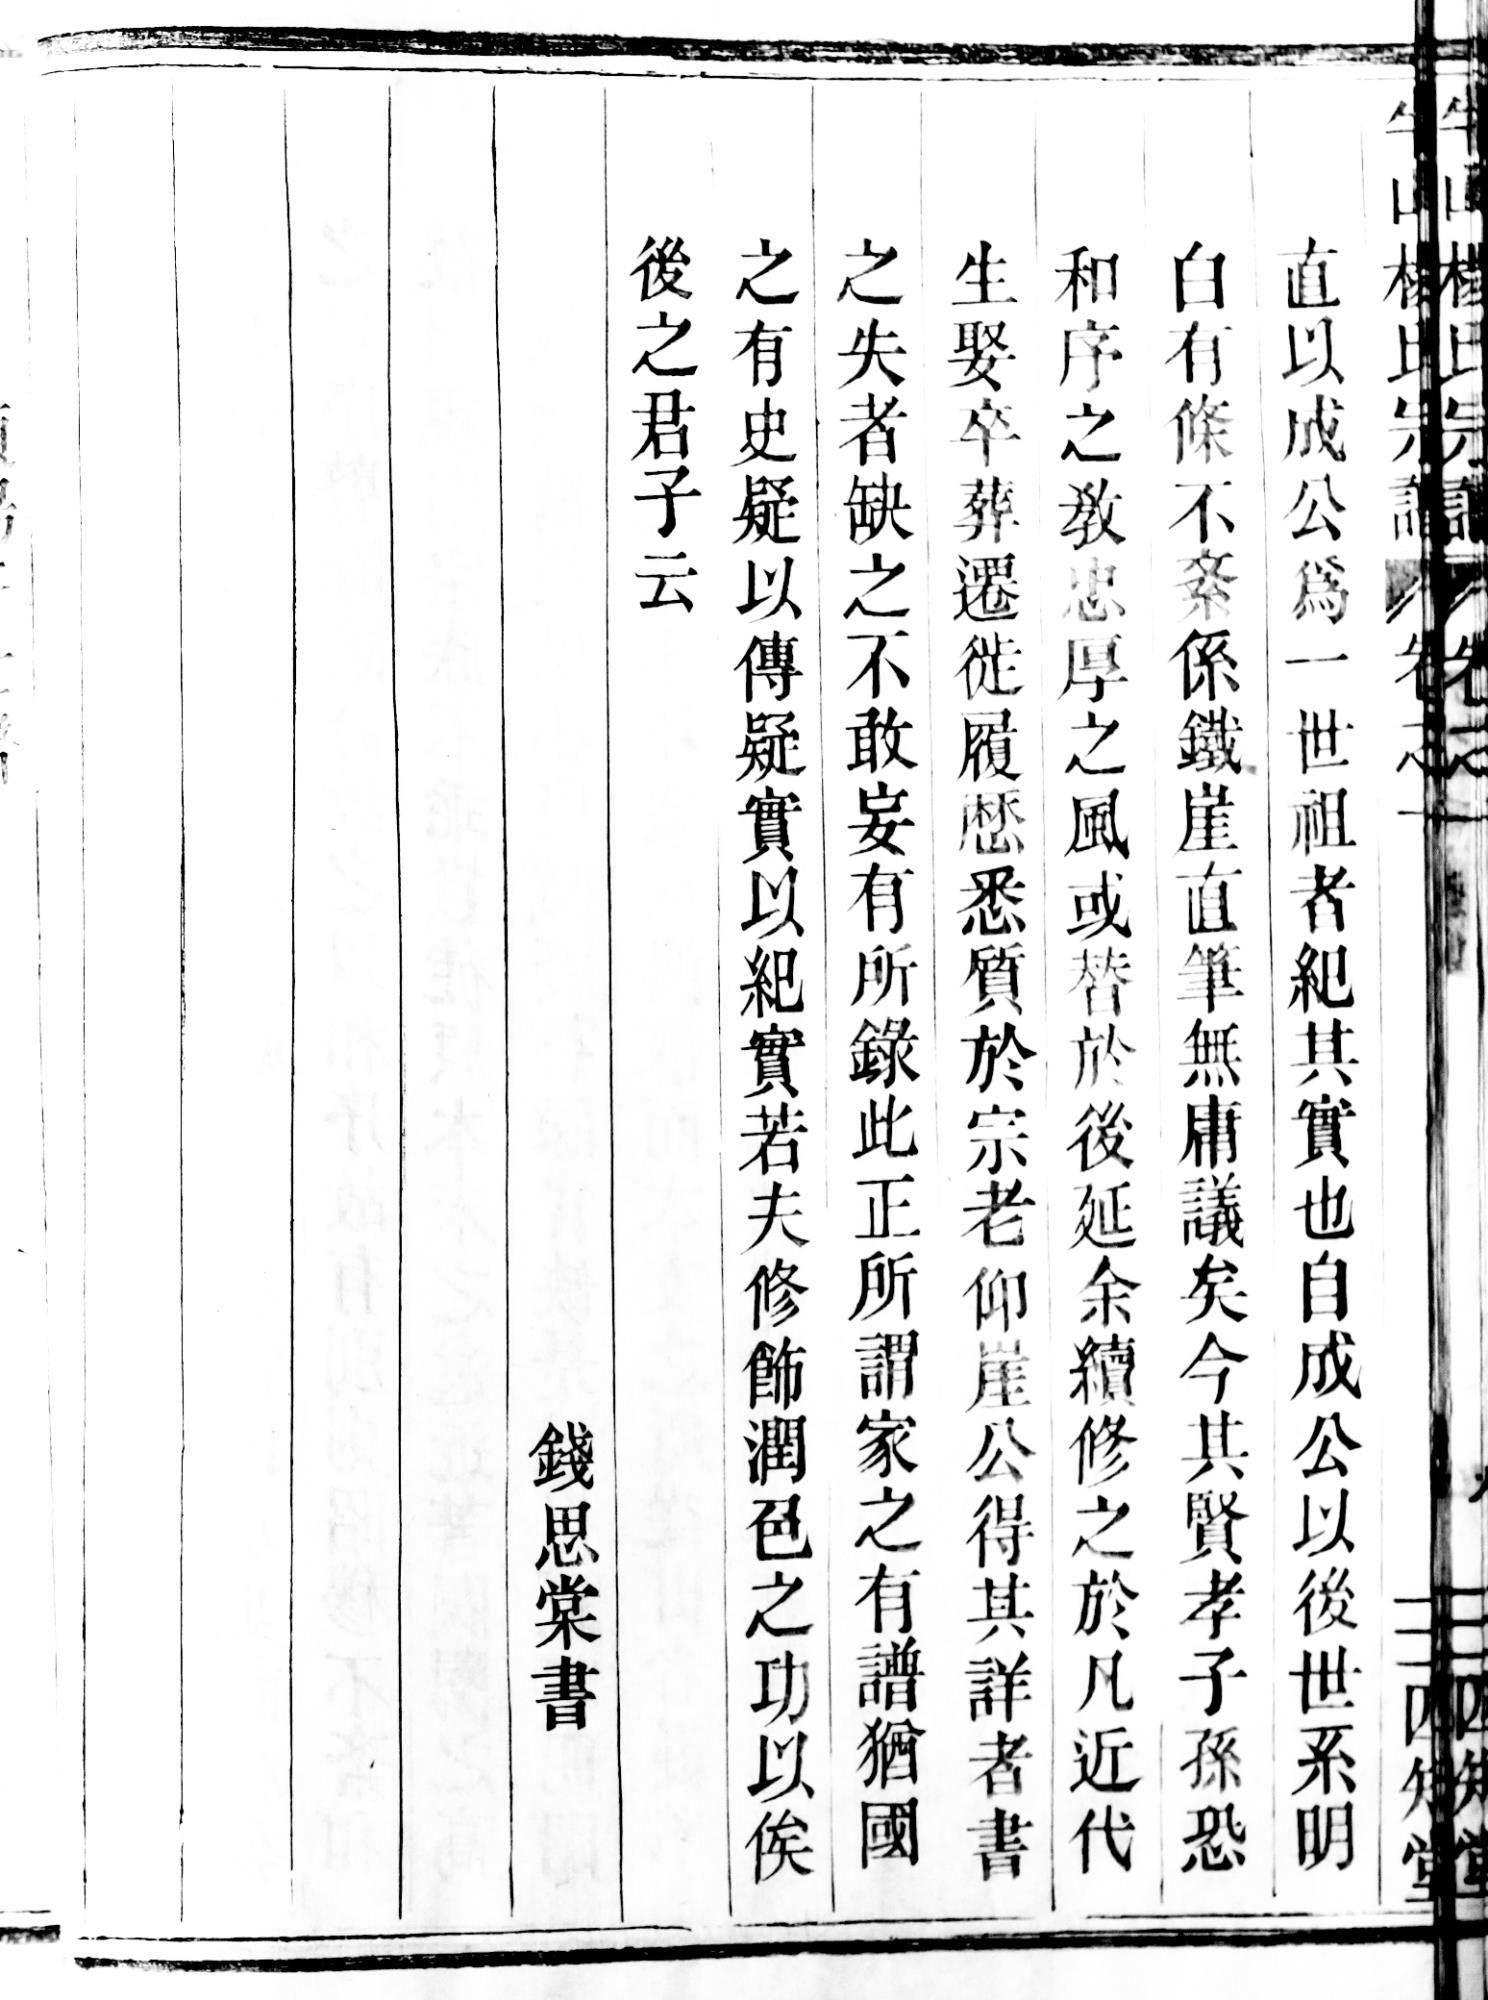 直以成公爲一世祖者紀其實也自成公以後世系明
白有條不紊係鐵崖直筆無庸議矣今其賢孝子孫恐
和序之教忠厚之風或替於後延余續修之於凡近代
生娶卒葬遷徙履歷悉質於宗老仰崖公得其詳者書
之失者缺之不敢妄有所錄此正所謂家之有譜猶國
之有史疑以傳疑實以紀實若夫修飾潤色之功以俟
後之君子云
錢思棠書